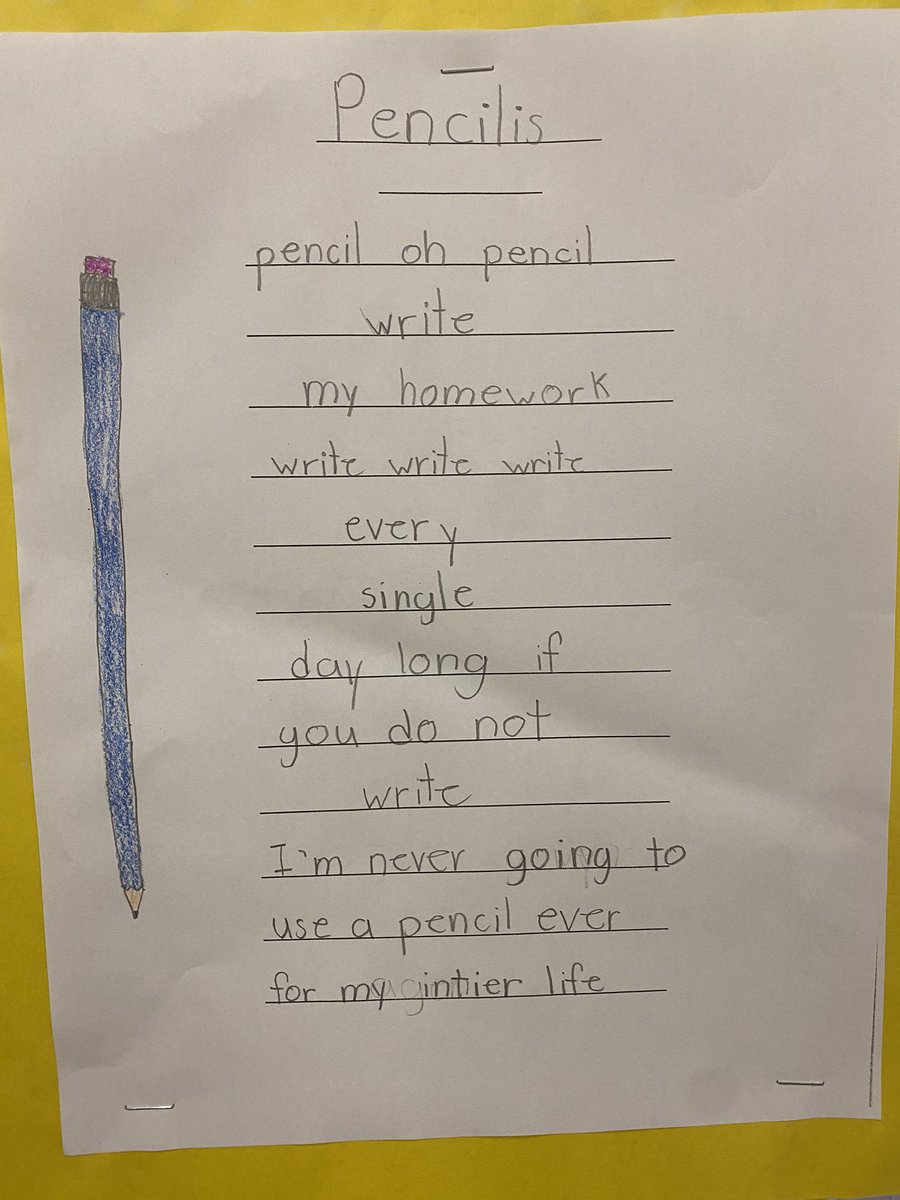 Pencilis
pencil oh pencil
write
my homework
write write write
every
single
day long if
you do not
write
I'm never going to
use a pencil ever
for my intier life